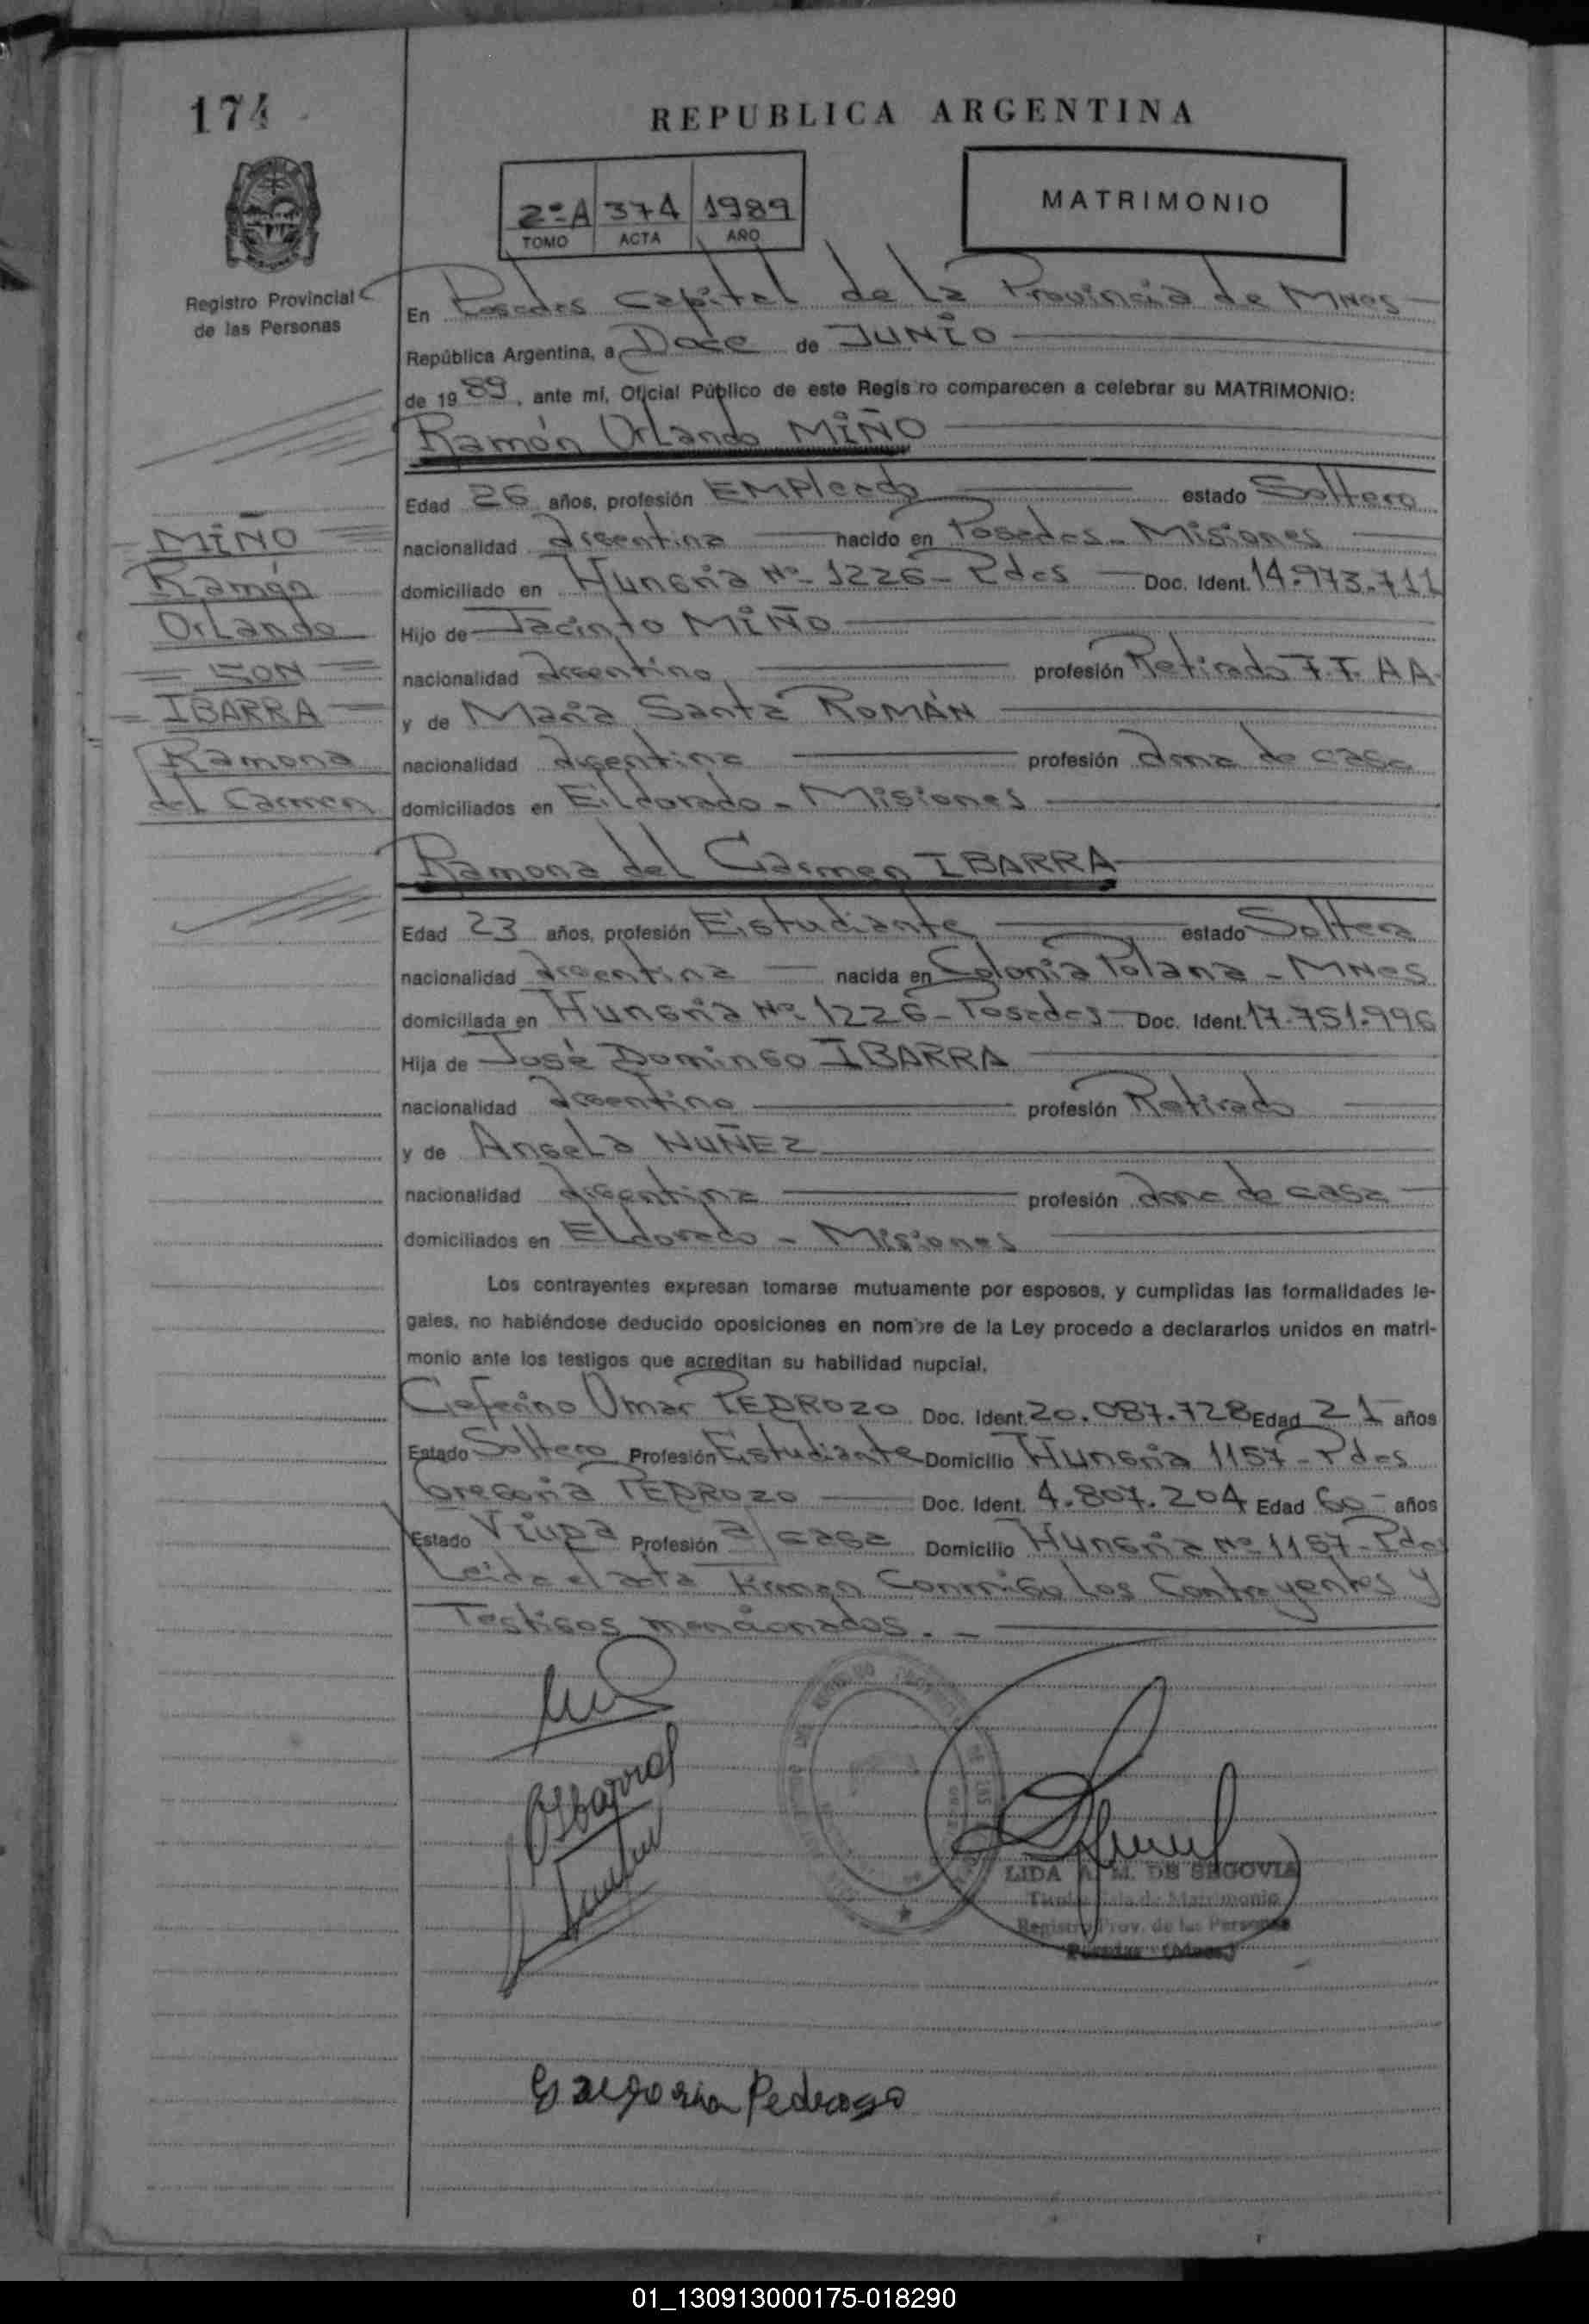 174
REPUBLICA ARGENTINA
2º A 374 1989
TOMO ACTA AÑO
MATRIMONIO
Registro Provincial
de las Personas
En Posadas Capital de la Provincia de Mnes
República Argentina, a Doce de JUNIO
de 1989, ante mí, Oficial Público de este Registro comparecen a celebrar su MATRIMONIO:
Ramón Orlando MIÑO
Edad 26 años, profesión Empleado estado Soltero
nacionalidad Argentina nacido en Posadas - Misiones
domiciliado en Hungría Nº 1226 - Pdas Doc. Ident. 14.973.711
Hijo de Jacinto MIÑO
nacionalidad Argentino profesión Retirado F.F. AA
y de María Santa ROMÁN
nacionalidad Argentina profesión Ama de casa
domiciliados en Eldorado - Misiones
MIÑO
Ramón
Orlando
CON
IBARRA
Ramona
del Carmen
Ramona del Carmen IBARRA
Edad 23 años, profesión Estudiante estado Soltera
nacionalidad Argentina nacida en Colonia Polana - Mnes
domiciliada en Hungría Nº 1226 - Posadas Doc. Ident. 17.751.996
Hija de José Domingo IBARRA
nacionalidad Argentino profesión Retirado
y de Angela NUÑEZ
nacionalidad Argentina profesión Ama de casa
domiciliados en Eldorado - Misiones
Los contrayentes expresan tomarse mutuamente por esposos, y cumplidas las formalidades le-
gales, no habiéndose deducido oposiciones en nombre de la Ley procedo a declararlos unidos en matri-
monio ante los testigos que acreditan su habilidad nupcial,
Ceferino Omar PEDROZO Doc. Ident. 20.087.728 Edad 21 años
Estado Soltero Profesión Estudiante Domicilio Hungría 1157 - Pdas
Gregoria PEDROZO Doc. Ident. 4.807.204 Edad 60 años
Estado Viuda Profesión a/casa Domicilio Hungría Nº 1157 - Pdas
Leída el acta firman conmigo los Contrayentes y
Testigos mencionados. -
RIbarra
LIDA A. M. DE SEGOVIA
Titular Sala de Matrimonio
Registro Prov. de las Personas
Posadas (Mnes)
Gregoria Pedrozo
01_130913000175-018290